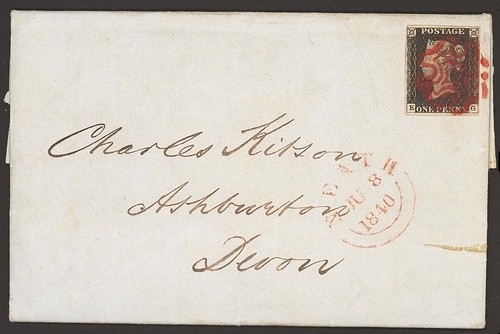 POSTAGE
E G
ONE PENNY
Charles Kitson
BATH
JU 8
1840
Ashburton
Devon